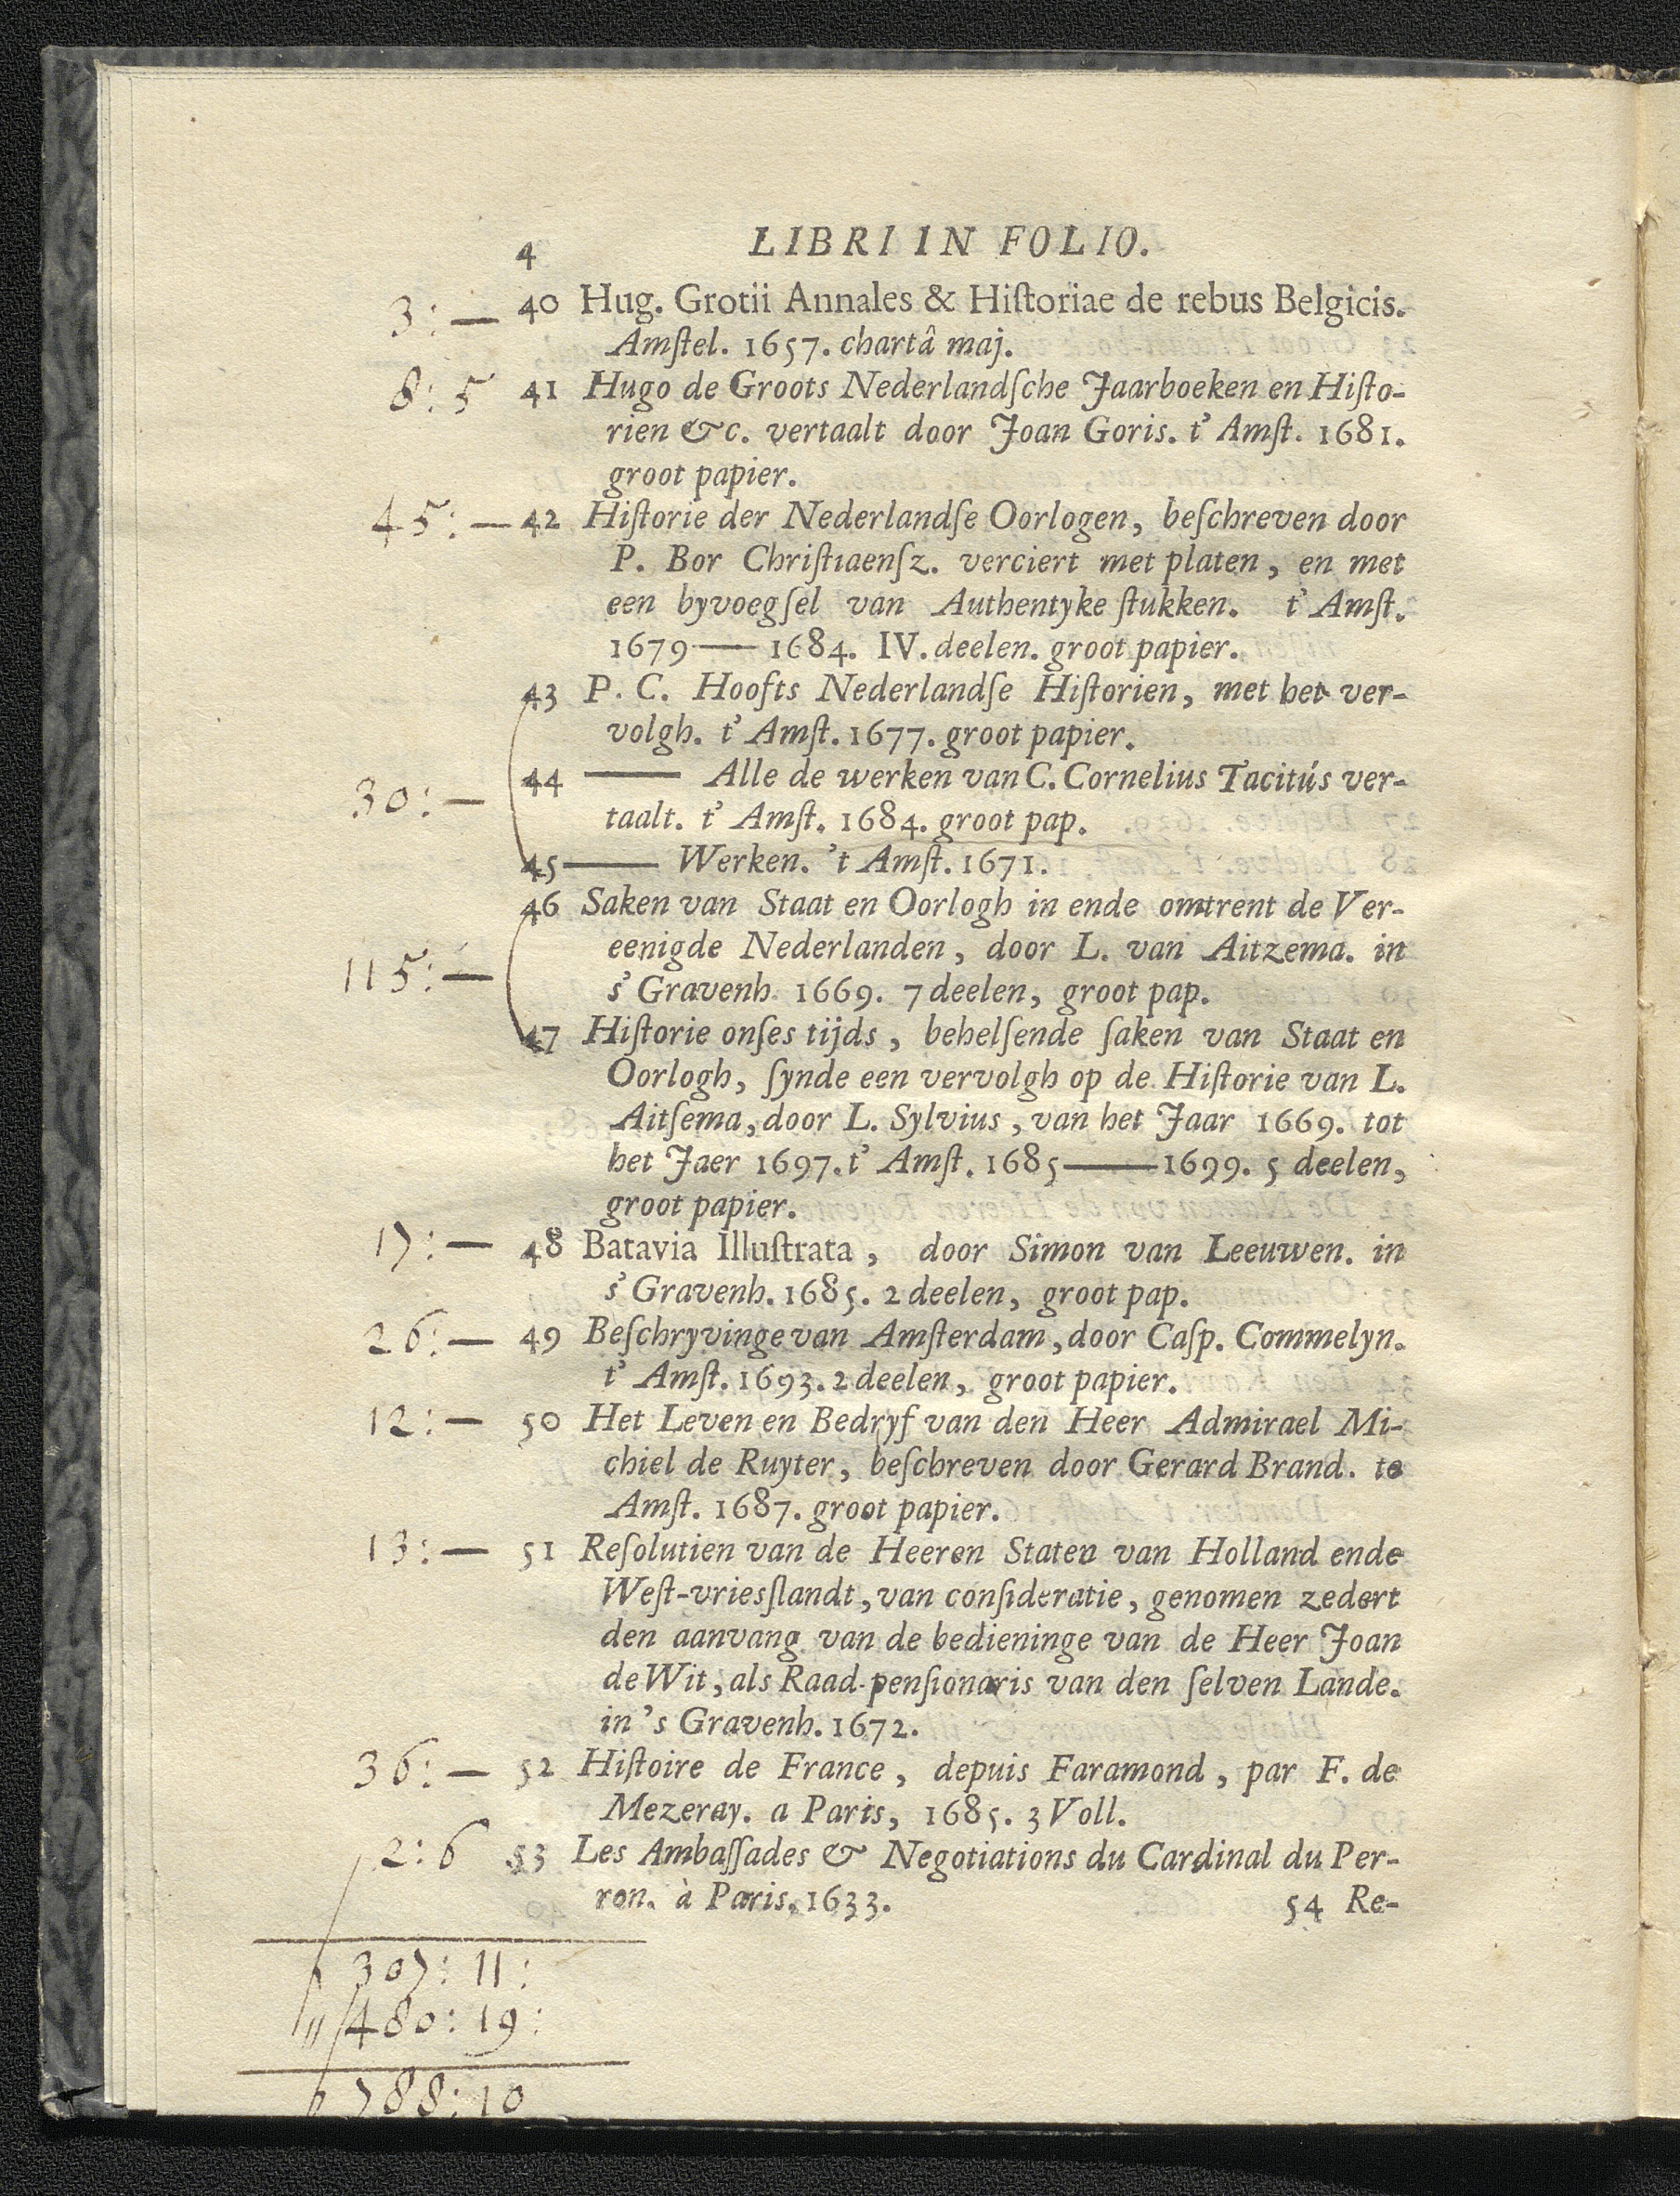 4 LIBRI IN FOLIO.
3:— 40 Hug. Grotii Annales & Hiſtoriae de rebus Belgicis.
Amſtel. 1657. chartâ maj.
8:5 41 Hugo de Groots Nederlandſche Jaarboeken en Hiſto-
rien &c. vertaalt door Joan Goris. t' Amſt. 1681.
groot papier.
45:— 42 Hiſtorie der Nederlandſe Oorlogen, beſchreven door
P. Bor Chriſtiaenſz. verciert met platen, en met
een byvoegſel van Authentyke ſtukken. t' Amſt.
1679—— 1684. IV. deelen. groot papier.
43 P. C. Hoofts Nederlandſe Hiſtorien, met het ver-
volgh. t' Amſt. 1677. groot papier.
30:— 44 —— Alle de werken van C. Cornelius Tacitús ver-
taalt. t' Amſt. 1684. groot pap.
45 —— Werken. 't Amſt. 1671.
46 Saken van Staat en Oorlogh in ende omtrent de Ver-
eenigde Nederlanden, door L. van Aitzema. in
115:— s' Gravenh. 1669. 7 deelen, groot pap.
47 Hiſtorie onſes tijds, behelſende ſaken van Staat en
Oorlogh, ſynde een vervolgh op de Hiſtorie van L.
Aitſema, door L. Sylvius, van het Jaar 1669. tot
het Jaer 1697. t' Amſt. 1685——1699. 5 deelen,
groot papier.
17:— 48 Batavia Illuſtrata, door Simon van Leeuwen. in
s' Gravenh. 1685. 2 deelen, groot pap.
26:— 49 Beſchryvinge van Amſterdam, door Caſp. Commelyn.
t' Amſt. 1693. 2 deelen, groot papier.
12:— 50 Het Leven en Bedryf van den Heer Admirael Mi-
chiel de Ruyter, beſchreven door Gerard Brand. te
Amſt. 1687. groot papier.
13:— 51 Reſolutien van de Heeren Staten van Holland ende
Weſt-vriesſlandt, van conſideratie, genomen zedert
den aanvang van de bedieninge van de Heer Joan
de Wit, als Raad-penſionaris van den ſelven Lande.
in 's Gravenh. 1672.
36:— 52 Hiſtoire de France, depuis Faramond, par F. de
Mezeray. a Paris, 1685. 3 Voll.
2:6 53 Les Ambaſſades & Negotiations du Cardinal du Per-
ron. à Paris. 1633. 54 Re-
307:11:
480:19:
788:10